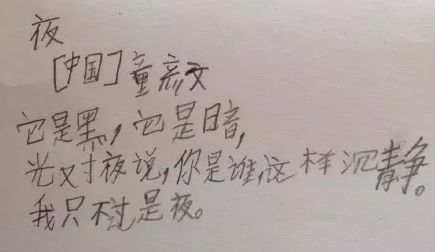 夜
[中国]童亦文
它是黑,它是暗,
光对夜说,你是谁,这样沉静。
我只不过是夜。